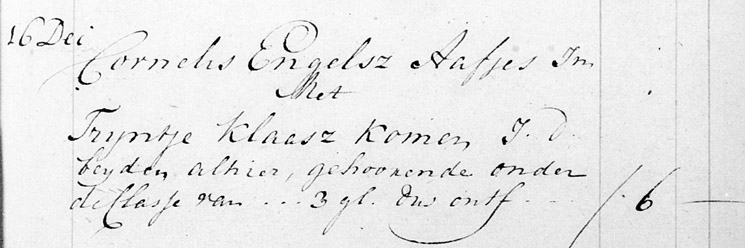 16 Dei
Cornelis Engelsz Aafjes Jm
Met
Tryntje Klaasz Komen J. d
beyden alhier, gehoorende onder
de Classe van ... 3 gl. dus ontf ... / . 6 —